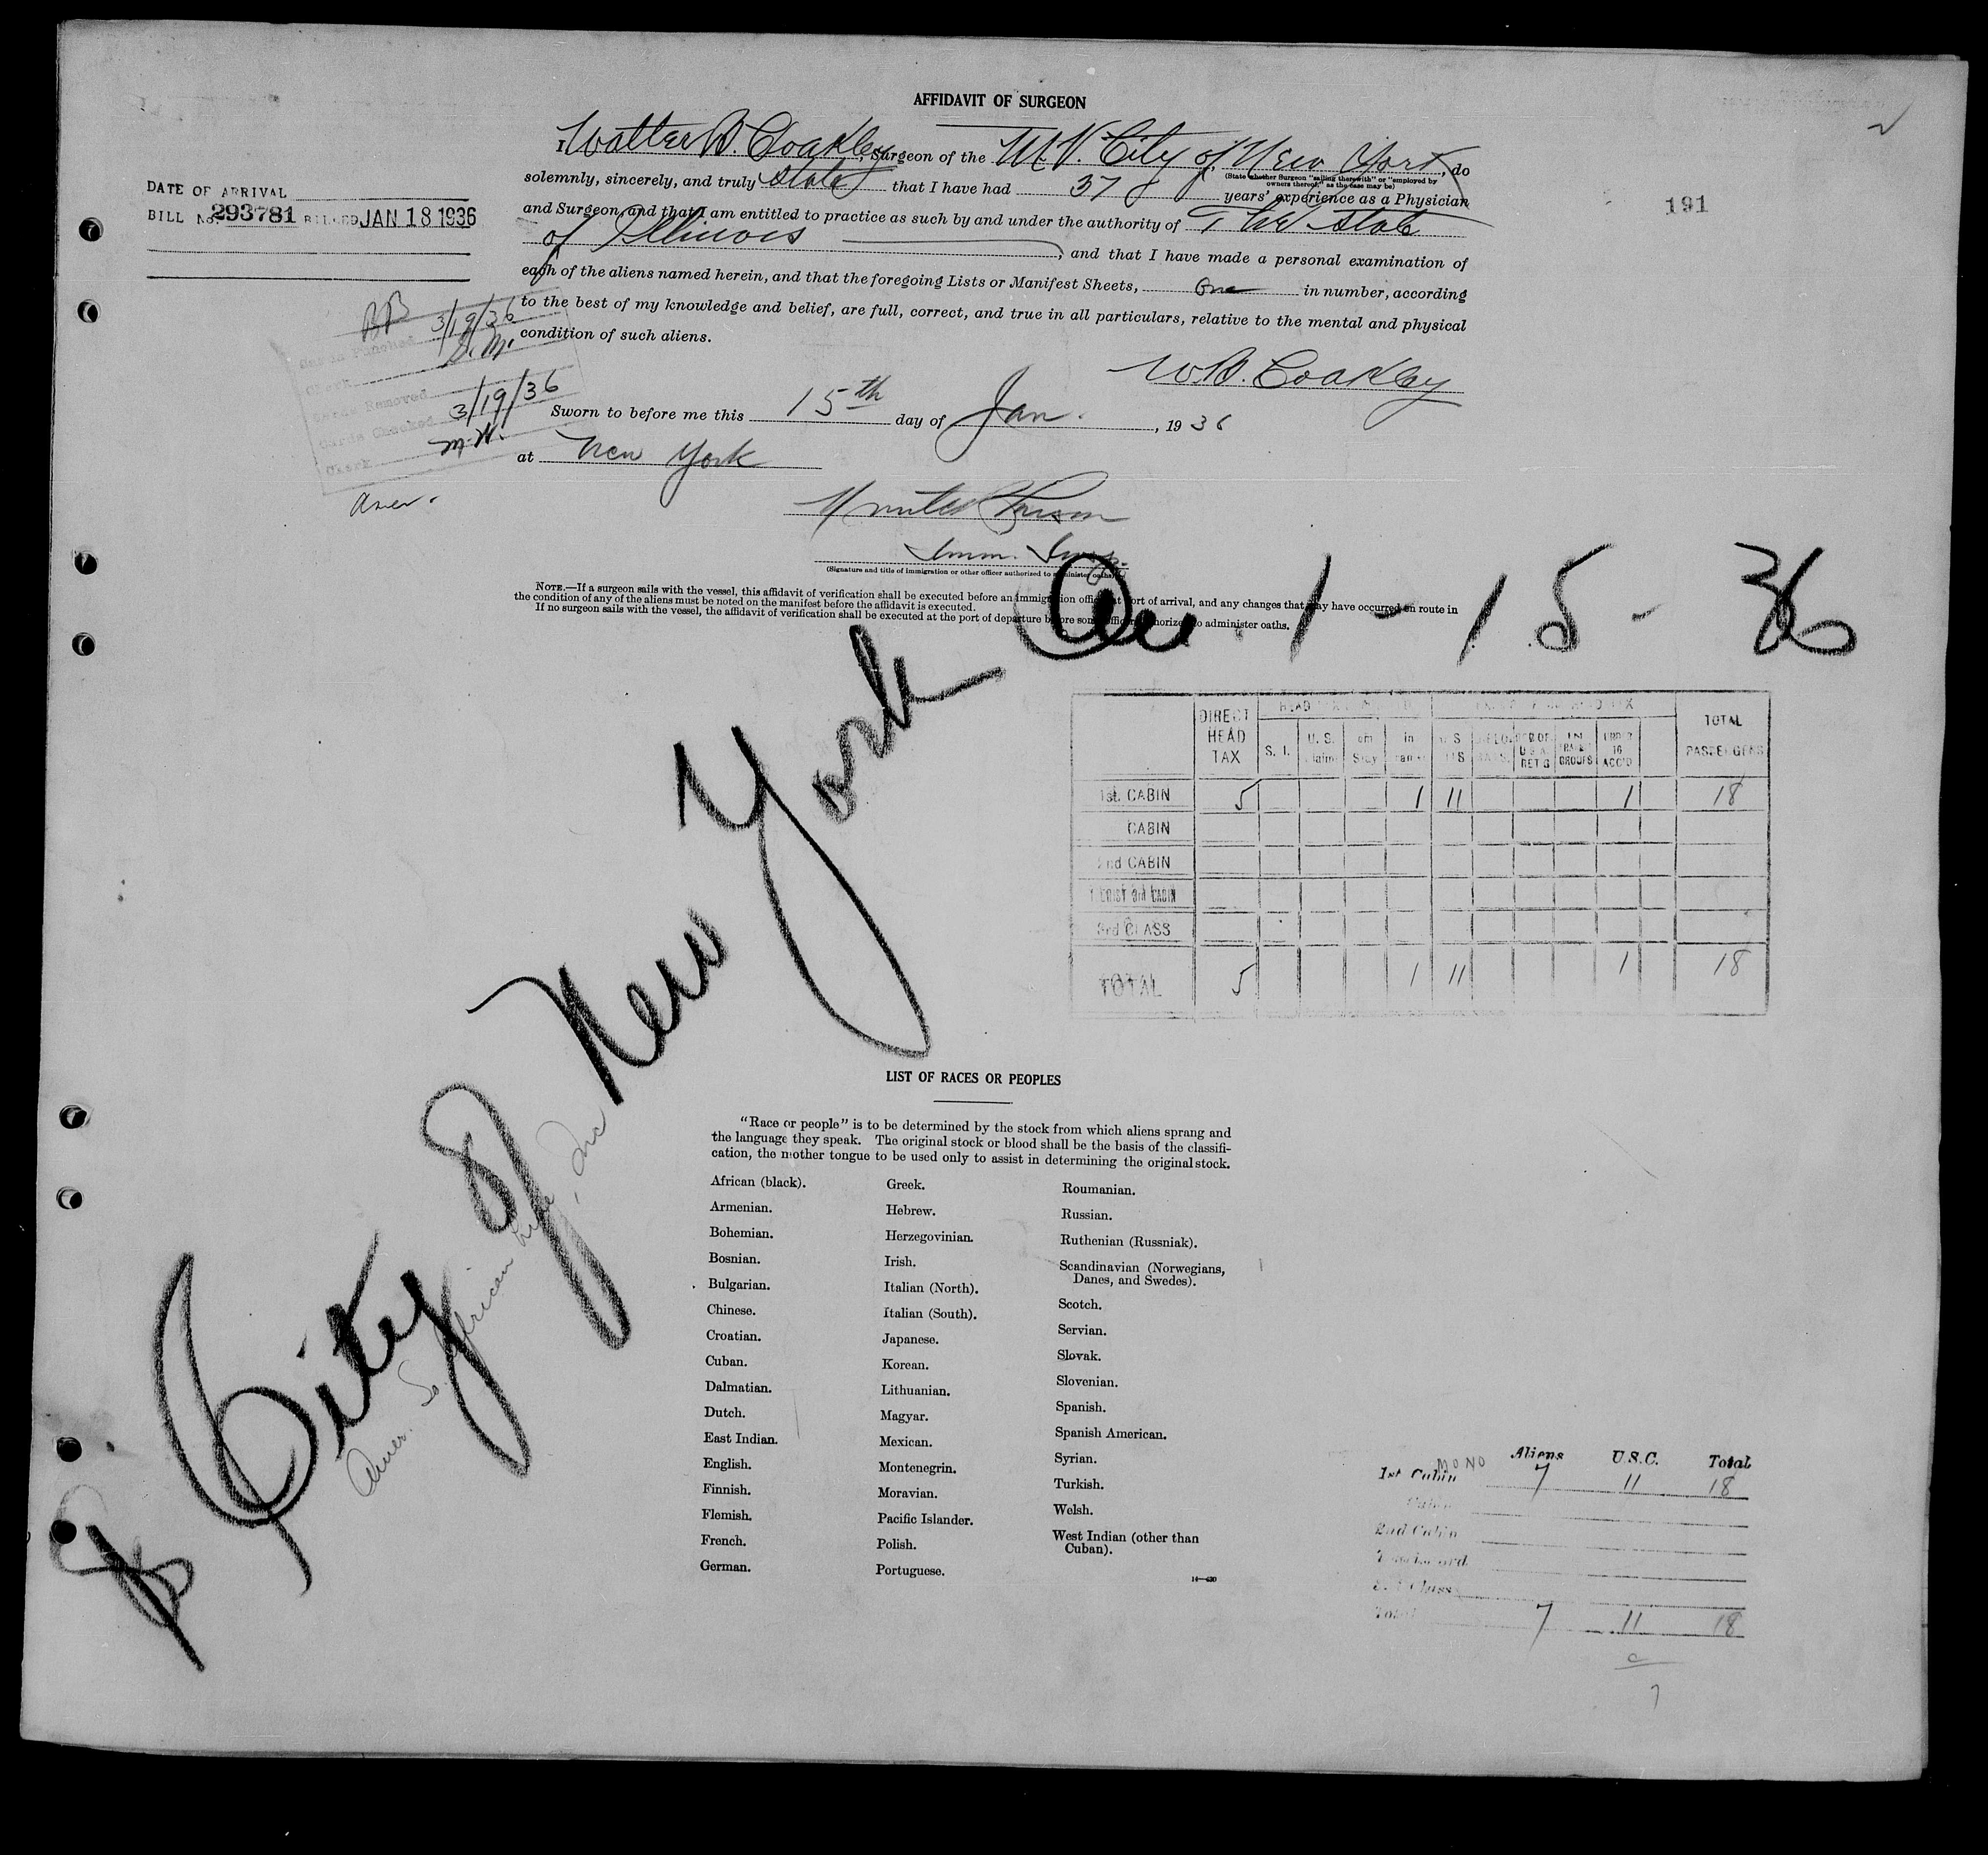 AFFIDAVIT OF SURGEON
I, Walter B. Coakley, Surgeon of the M.V. City of New York, do
(State whether Surgeon "sailing therewith" or "employed by owners thereof," as the case may be)
solemnly, sincerely, and truly state that I have had 37 years' experience as a Physician
and Surgeon, and that I am entitled to practice as such by and under the authority of The State
of Illinois, and that I have made a personal examination of
each of the aliens named herein, and that the foregoing Lists or Manifest Sheets, One in number, according
to the best of my knowledge and belief, are full, correct, and true in all particulars, relative to the mental and physical
condition of such aliens.
W.B. Coakley
Sworn to before me this 15th day of Jan., 1936
at New York
Imm. Insp.
(Signature and title of immigration or other officer authorized to administer oaths)
NOTE.—If a surgeon sails with the vessel, this affidavit of verification shall be executed before an immigration officer at port of arrival, and any changes that may have occurred en route in
the condition of any of the aliens must be noted on the manifest before the affidavit is executed.
If no surgeon sails with the vessel, the affidavit of verification shall be executed at the port of departure before some officer authorized to administer oaths.
DATE OF ARRIVAL
BILL No. 293781 BILLED JAN 18 1936
191
3/19/36
S.M.
Cards Removed
Cards Checked 3/19/36
Clerk M.W.
1-15-36
City of New York
Amer. So. African Line, Inc
DIRECT HEAD TAX
S. I.
U. S.
TOTAL PASSENGERS
1st. CABIN 5 1 11 1 18
CABIN
2nd CABIN
3rd CLASS
TOTAL 5 1 11 1 18
LIST OF RACES OR PEOPLES
"Race or people" is to be determined by the stock from which aliens sprang and
the language they speak. The original stock or blood shall be the basis of the classifi-
cation, the mother tongue to be used only to assist in determining the original stock.
African (black).
Armenian.
Bohemian.
Bosnian.
Bulgarian.
Chinese.
Croatian.
Cuban.
Dalmatian.
Dutch.
East Indian.
English.
Finnish.
Flemish.
French.
German.
Greek.
Hebrew.
Herzegovinian.
Irish.
Italian (North).
Italian (South).
Japanese.
Korean.
Lithuanian.
Magyar.
Mexican.
Montenegrin.
Moravian.
Pacific Islander.
Polish.
Portuguese.
Roumanian.
Russian.
Ruthenian (Russniak).
Scandinavian (Norwegians,
Danes, and Swedes).
Scotch.
Servian.
Slovak.
Slovenian.
Spanish.
Spanish American.
Syrian.
Turkish.
Welsh.
West Indian (other than
Cuban).
Aliens U.S.C. Total
MONO
1st Cabin 7 11 18
Cabin
2nd Cabin
Total 7 11 18